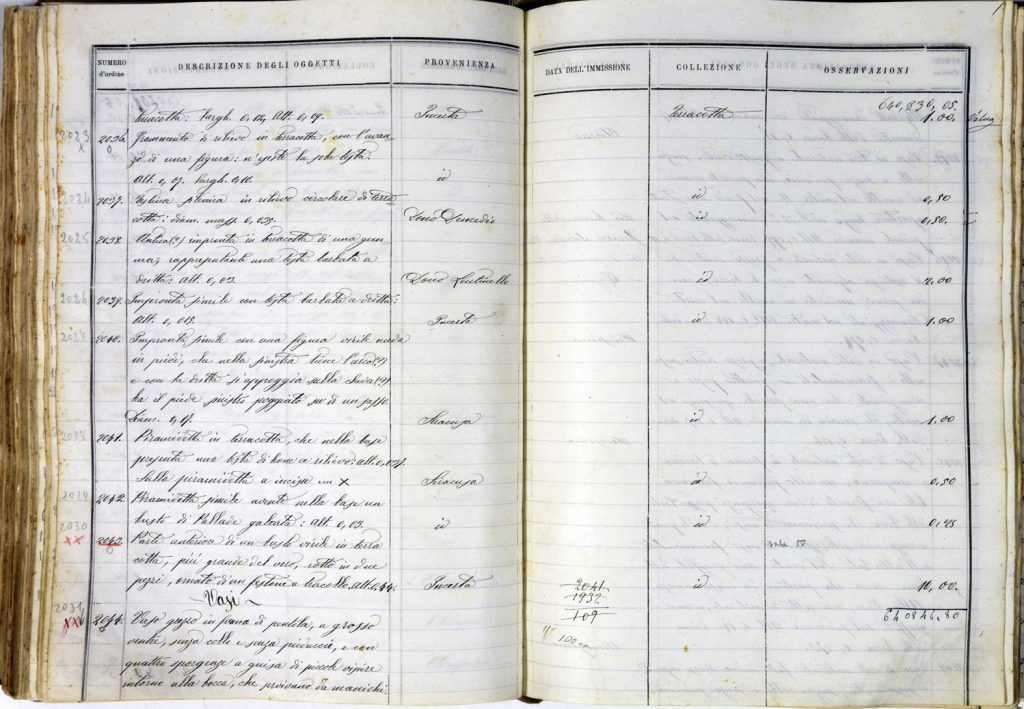 NUMERO d'ordine
DESCRIZIONE DEGLI OGGETTI
PROVENIENZA
DATA DELL'IMMISSIONE
COLLEZIONE
OSSERVAZIONI
640,830,05.
terracotta: largh. 0,12, Alt. 0,09. Incerta Terracotta 1.00.
2023 x
2036. Frammento di rilievo in terracotta, con l'avan-
zo di una figura: n'esiste la sola testa.
Alt. 0,07. Largh. 0,10. id id 0,50
2024
2037. Testina scenica in rilievo circolare di terra
cotta: diam. mass. 0,035. Dono id 0,50.
2025
2038. Antica(?) impronta in terracotta di una gem-
ma, rappresentante una testa barbata a
dritta: Alt. 0,03. Dono id 2.00
2026
2039. Impronta simile con testa barbata a dritta:
Alt. 0,015. Incerta id 1.00
2027
2040. Impronta simile con una figura virile nuda
in piedi, che nella sinistra tiene l'arco(?)
e con la dritta si appoggia sulla clava(?)
ha il piede sinistro poggiato su di un
Diam. Siracusa id 1.00
2041. Piramidetta in terracotta, che nella base
presenta una testa di leone a rilievo: alt. 0,
Sulla piramidetta è incisa un X Siracusa id 0,50
2029
2042. Piramidetta simile avente nella base un
busto di Pallade galeata: Alt. 0,05. id id
2030 xx
2043. Parte anteriore di un busto virile in terra sala IV
cotta, più grande del vero, rotto in due
pezzi, ornato di un festone a tracollo. Alt. 0,44. Incerta id 10,00.
2041
1932
109
Vasi
640846,80
2031 xx
2044. Vaso grezzo in forma di pentola, a grosso
ventre, senza collo e senza peduccio, e con
quattro sporgenze a guisa di piccole
intorno alla bocca, che servivano da manichi.